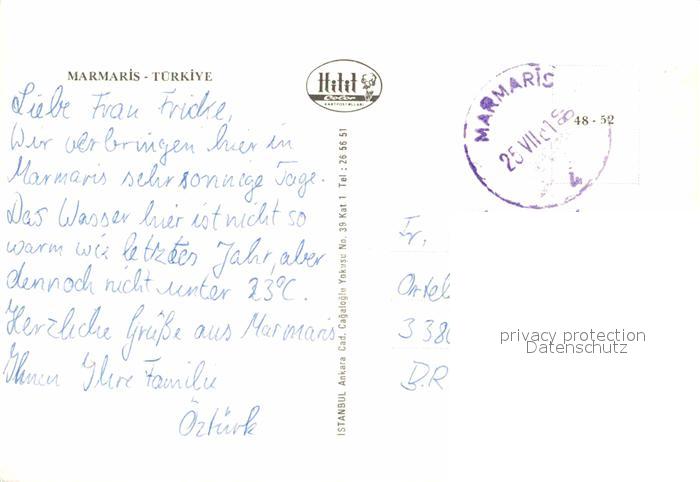 MARMARİS - TÜRKİYE
Liebe Frau Fricke,
Wir verbringen hier in
Marmaris sehr sonnige Tage.
Das Wasser hier ist nicht so
warm wie letztes Jahr, aber
dennoch nicht unter 23°C.
Herzliche Grüße aus Marmaris
Ihnen Ihre Familie
Öztürk
Hitit
Color
KARTPOSTALLARI
İSTANBUL Ankara Cad. Cağaloğlu Yokuşu No. 39 Kat 1 Tel: 26 56 51
MARMARİS
25 VII
4
48 - 52
Fr.
338
B.R
privacy protection
Datenschutz